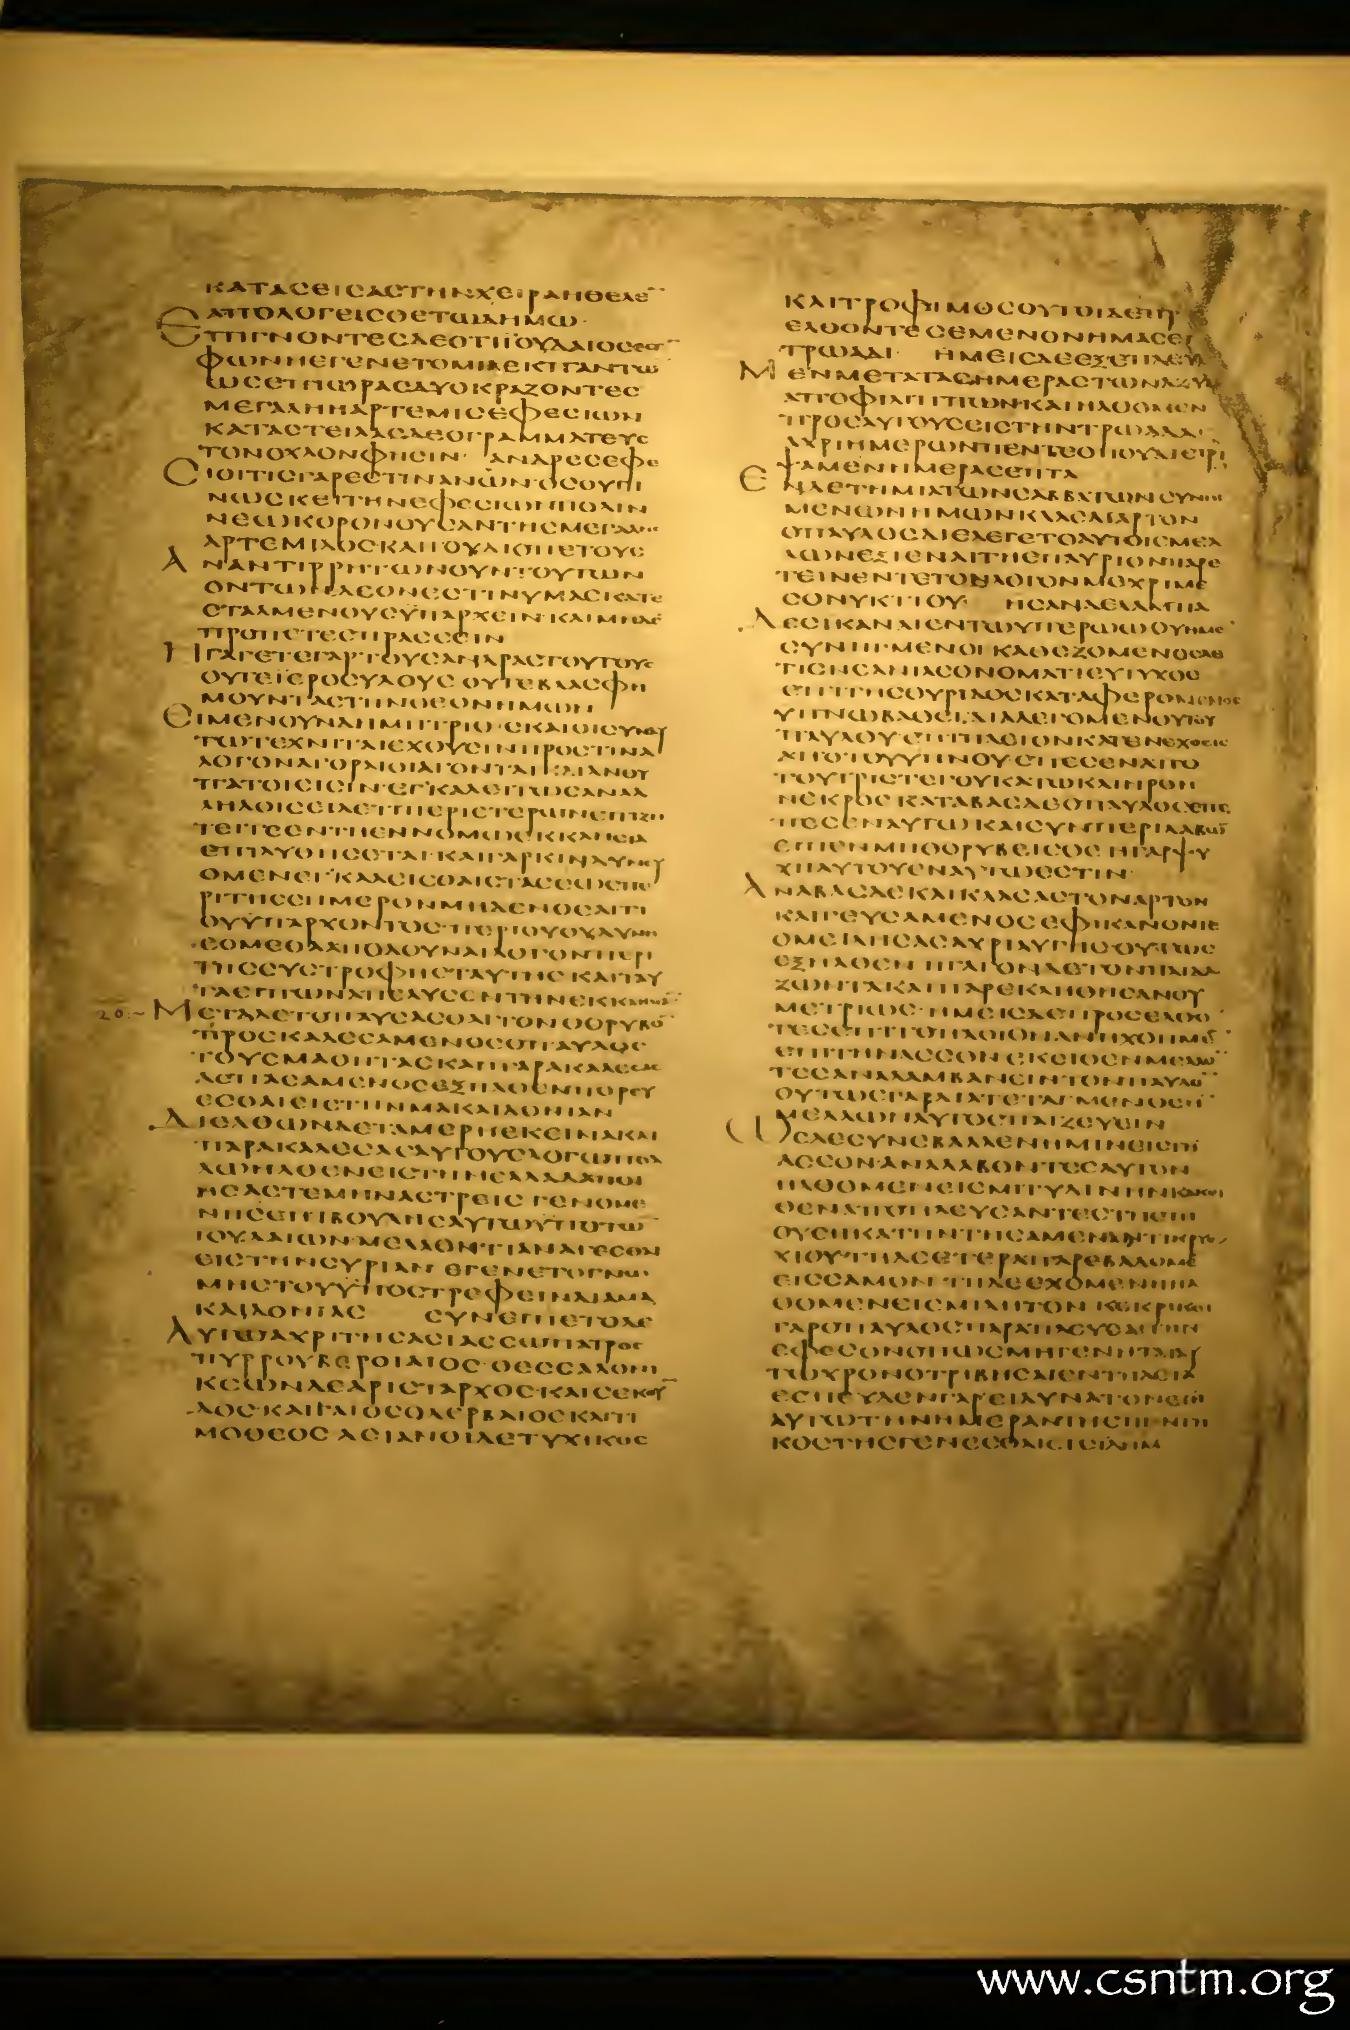 ΚΑΤΑΣΕΙΣΑΣΤΗΝΧΕΙΡΑΗΘΕΛΕ
ΑΠΟΛΟΓΕΙΣΘΕΤΩΔΗΜΩ
ΕΠΙΓΝΟΝΤΕΣΔΕΟΤΙΪΟΥΔΑΙΟΣΕΣΤΙ
ΦΩΝΗΕΓΕΝΕΤΟΜΙΑΕΚΠΑΝΤΩ
ΩΣΕΠΙΩΡΑΣΔΥΟΚΡΑΖΟΝΤΕΣ
ΜΕΓΑΛΗΗΑΡΤΕΜΙΣΕΦΕΣΙΩΝ
ΚΑΤΑΣΤΕΙΛΑΣΔΕΟΓΡΑΜΜΑΤΕΥΣ
ΤΟΝΟΧΛΟΝΦΗΣΙΝ ΑΝΔΡΕΣΕΦΕ
ΣΙΟΙΤΙΣΓΑΡΕΣΤΙΝΑΝΩΝΟΣΟΥΓΙ
ΝΩΣΚΕΙΤΗΝΕΦΕΣΙΩΝΠΟΛΙΝ
ΝΕΩΚΟΡΟΝΟΥΣΑΝΤΗΣΜΕΓΑΛΗΣ
ΑΡΤΕΜΙΔΟΣΚΑΙΤΟΥΔΙΟΠΕΤΟΥΣ
ΑΝΑΝΤΙΡΡΗΤΩΝΟΥΝΤΟΥΤΩΝ
ΟΝΤΩΝΔΕΟΝΕΣΤΙΝΥΜΑΣΚΑΤΕ
ΣΤΑΛΜΕΝΟΥΣΫΠΑΡΧΕΙΝ ΚΑΙΜΗΔΕ
ΠΡΟΠΕΤΕΣΠΡΑΣΣΕΙΝ
ΗΓΑΓΕΤΕΓΑΡΤΟΥΣΑΝΔΡΑΣΤΟΥΤΟΥΣ
ΟΥΤΕΪΕΡΟΣΥΛΟΥΣ ΟΥΤΕΒΛΑΣΦΗ
ΜΟΥΝΤΑΣΤΗΝΘΕΟΝΗΜΩΝ
ΕΙΜΕΝΟΥΝΔΗΜΗΤΡΙΟΣΚΑΙΟΙΣΥΝΑΥ
ΤΩΤΕΧΝΙΤΑΙΕΧΟΥΣΙΝΠΡΟΣΤΙΝΑ
ΛΟΓΟΝΑΓΟΡΑΙΟΙΑΓΟΝΤΑΙ ΚΑΙΑΝΘΥ
ΠΑΤΟΙΕΙΣΙΝ ΕΓΚΑΛΕΙΤΩΣΑΝΑΛ
ΛΗΛΟΙΣ
20 ΜΕΤΑΔΕΤΟΠΑΥΣΑΣΘΑΙΤΟΝΘΟΡΥΒΟ
ΠΡΟΣΚΑΛΕΣΑΜΕΝΟΣΟΠΑΥΛΟΣ
ΤΟΥΣΜΑΘΗΤΑΣΚΑΙΠΑΡΑΚΑΛΕΣΑΣ
ΑΣΠΑΣΑΜΕΝΟΣΕΞΗΛΘΕΝΠΟΡΕΥ
ΕΣΘΑΙΕΙΣΤΗΝΜΑΚΑΙΔΟΝΙΑΝ
ΔΙΕΛΘΩΝΔΕΤΑΜΕΡΗΕΚΕΙΝΑΚΑΙ
ΠΑΡΑΚΑΛΕΣΑΣΑΥΤΟΥΣΛΟΓΩΠΟΛ
ΛΩΗΛΘΕΝΕΙΣΤΗΝΕΛΛΑΔΑΠΟΙ
ΗΣΑΣΤΕΜΗΝΑΣΤΡΕΙΣ ΓΕΝΟΜΕ
ΝΗΣΕΠΙΒΟΥΛΗΣΑΥΤΩΫΠΟΤΩ
ΙΟΥΔΑΙΩΝ ΜΕΛΛΟΝΤΙΑΝΑΓΕΣΘΑΙ
ΕΙΣΤΗΝΣΥΡΙΑΝ ΕΓΕΝΕΤΟΓΝΩ
ΜΗΣΤΟΥΫΠΟΣΤΡΕΦΕΙΝΔΙΑΜΑ
ΚΑΙΔΟΝΙΑΣ ΣΥΝΕΙΠΕΤΟΔΕ
ΑΥΤΩΑΧΡΙΤΗΣΑΣΙΑΣΣΩΠΑΤΡΟΣ
ΠΥΡΡΟΥΒΕΡΟΙΑΙΟΣ ΘΕΣΣΑΛΟΝΙ
ΚΕΩΝΔΕΑΡΙΣΤΑΡΧΟΣΚΑΙΣΕΚΟΥ
ΔΟΣ ΚΑΙΓΑΙΟΣΟΔΕΡΒΑΙΟΣΚΑΙΤΙ
ΜΟΘΕΟΣ ΑΣΙΑΝΟΙΔΕΤΥΧΙΚΟΣ
ΚΑΙΤΡΟΦΙΜΟΣΟΥΤΟΙΔΕΠΡ
ΕΛΘΟΝΤΕΣΕΜΕΝΟΝΗΜΑΣΕ
ΤΡΩΑΔΙ ΗΜΕΙΣΔΕΕΞΕΠΛΕΥ
ΜΕΝΜΕΤΑΤΑΣΗΜΕΡΑΣΤΩΝΑΖΥ
ΑΠΟΦΙΛΙΠΠΩΝ ΚΑΙΗΛΘΟΜΕΝ
ΠΡΟΣΑΥΤΟΥΣΕΙΣΤΗΝΤΡΩΑΔΑ
ΑΧΡΙΗΜΕΡΩΝΠΕΝΤΕΟΠΟΥΔΙΕΤΡΙ
ΨΑΜΕΝΗΜΕΡΑΣΕΠΤΑ
ΕΝΔΕΤΗΜΙΑΤΩΝΣΑΒΒΑΤΩΝΣΥΝΗΓ
ΜΕΝΩΝΗΜΩΝΚΛΑΣΑΙΑΡΤΟΝ
ΟΠΑΥΛΟΣΔΙΕΛΕΓΕΤΟΑΥΤΟΙΣΜΕΛ
ΛΩΝΕΞΙΕΝΑΙΤΗΕΠΑΥΡΙΟΝΠΑΡΕ
ΤΕΙΝΕΝΤΕΤΟΝΛΟΓΟΝΜΕΧΡΙΜΕ
ΣΟΝΥΚΤΙΟΥ ΗΣΑΝΔΕΛΑΜΠΑ
ΔΕΣΙΚΑΝΑΙΕΝΤΩΥΠΕΡΩΩΟΥΗΜΕ
ΣΥΝΗΓΜΕΝΟΙ ΚΑΘΕΖΟΜΕΝΟΣΔΕ
ΤΙΣΝΕΑΝΙΑΣΟΝΟΜΑΤΙΕΥΤΥΧΟΣ
ΕΠΙΤΗΣΘΥΡΙΔΟΣΚΑΤΑΦΕΡΟΜΕΝΟΣ
ΥΠΝΩΒΑΘΕΙ ΔΙΑΛΕΓΟΜΕΝΟΥΤΟΥ
ΠΑΥΛΟΥ ΕΠΙΠΛΕΙΟΝΚΑΤΕΝΕΧΘΕΙΣ
ΑΠΟΤΟΥΥΠΝΟΥ ΕΠΕΣΕΝΑΠΟ
ΤΟΥΤΡΙΣΤΕΓΟΥΚΑΤΩΚΑΙΗΡΘΗ
ΝΕΚΡΟΣ ΚΑΤΑΒΑΣΔΕΟΠΑΥΛΟΣΕΠΕ
ΠΕΣΕΝΑΥΤΩΚΑΙΣΥΝΠΕΡΙΛΑΒΩ
ΕΙΠΕΝΜΗΘΟΡΥΒΕΙΣΘΕ ΗΓΑΡΨΥ
ΧΗΑΥΤΟΥΕΝΑΥΤΩΕΣΤΙΝ
ΑΝΑΒΑΣΔΕΚΑΙΚΛΑΣΑΣΤΟΝΑΡΤΟΝ
ΚΑΙΓΕΥΣΑΜΕΝΟΣΕΦΙΚΑΝΟΝΤΕ
ΟΜΕΙΛΗΣΑΣΑΧΡΙΑΥΓΗΣΟΥΤΩΣ
ΕΞΗΛΘΕΝ ΗΓΑΓΟΝΔΕΤΟΝΠΑΙΔΑ
ΖΩΝΤΑΚΑΙΠΑΡΕΚΛΗΘΗΣΑΝΟΥ
ΜΕΤΡΙΩΣ ΗΜΕΙΣΔΕΠΡΟΣΕΛΘΟ
ΤΕΣΕΠΙΤΟΠΛΟΙΟΝΑΝΗΧΘΗΜΕ
ΕΠΙΤΗΝΑΣΣΟΝ ΕΚΕΙΘΕΝΜΕΛΛΟ
ΤΕΣΑΝΑΛΑΜΒΑΝΕΙΝΤΟΝΠΑΥΛΟ
ΟΥΤΩΣΓΑΡΔΙΑΤΕΤΑΓΜΕΝΟΣΗ
ΜΕΛΛΩΝΑΥΤΟΣΠΑΙΖΕΥΕΙΝ
ΩΣΔΕΣΥΝΕΒΑΛΛΕΝΗΜΙΝΕΙΣΤΗ
ΑΣΣΟΝ ΑΝΑΛΑΒΟΝΤΕΣΑΥΤΟΝ
ΗΛΘΟΜΕΝΕΙΣΜΙΤΥΛΙΝΗΝΚΑΚΕΙ
ΘΕΝΑΠΟΠΛΕΥΣΑΝΤΕΣΤΗΕΠΙ
ΟΥΣΗΚΑΤΗΝΤΗΣΑΜΕΝΑΝΤΙΚΡΥΣ
ΧΙΟΥ ΤΗΔΕΕΤΕΡΑΠΑΡΕΒΑΛΟΜΕ
ΕΙΣΣΑΜΟΝ ΤΗΔΕΕΧΟΜΕΝΗΗΛ
ΘΟΜΕΝΕΙΣΜΙΛΗΤΟΝ ΚΕΚΡΙΚΕΙ
ΓΑΡΟΠΑΥΛΟΣΠΑΡΑΠΛΕΥΣΑΙΤΗΝ
ΕΦΕΣΟΝΟΠΩΣΜΗΓΕΝΗΤΑΙΑΥ
ΤΩΧΡΟΝΟΤΡΙΒΗΣΑΙΕΝΤΗΑΣΙΑ
ΕΣΠΕΥΔΕΝΓΑΡΕΙΔΥΝΑΤΟΝΕΙΗ
ΑΥΤΩΤΗΝΗΜΕΡΑΝΤΗΣΠΕΝΤΗ
ΚΟΣΤΗΣΓΕΝΕΣΘΑΙΕΙΣΙΛΗΜ
www.csntm.org